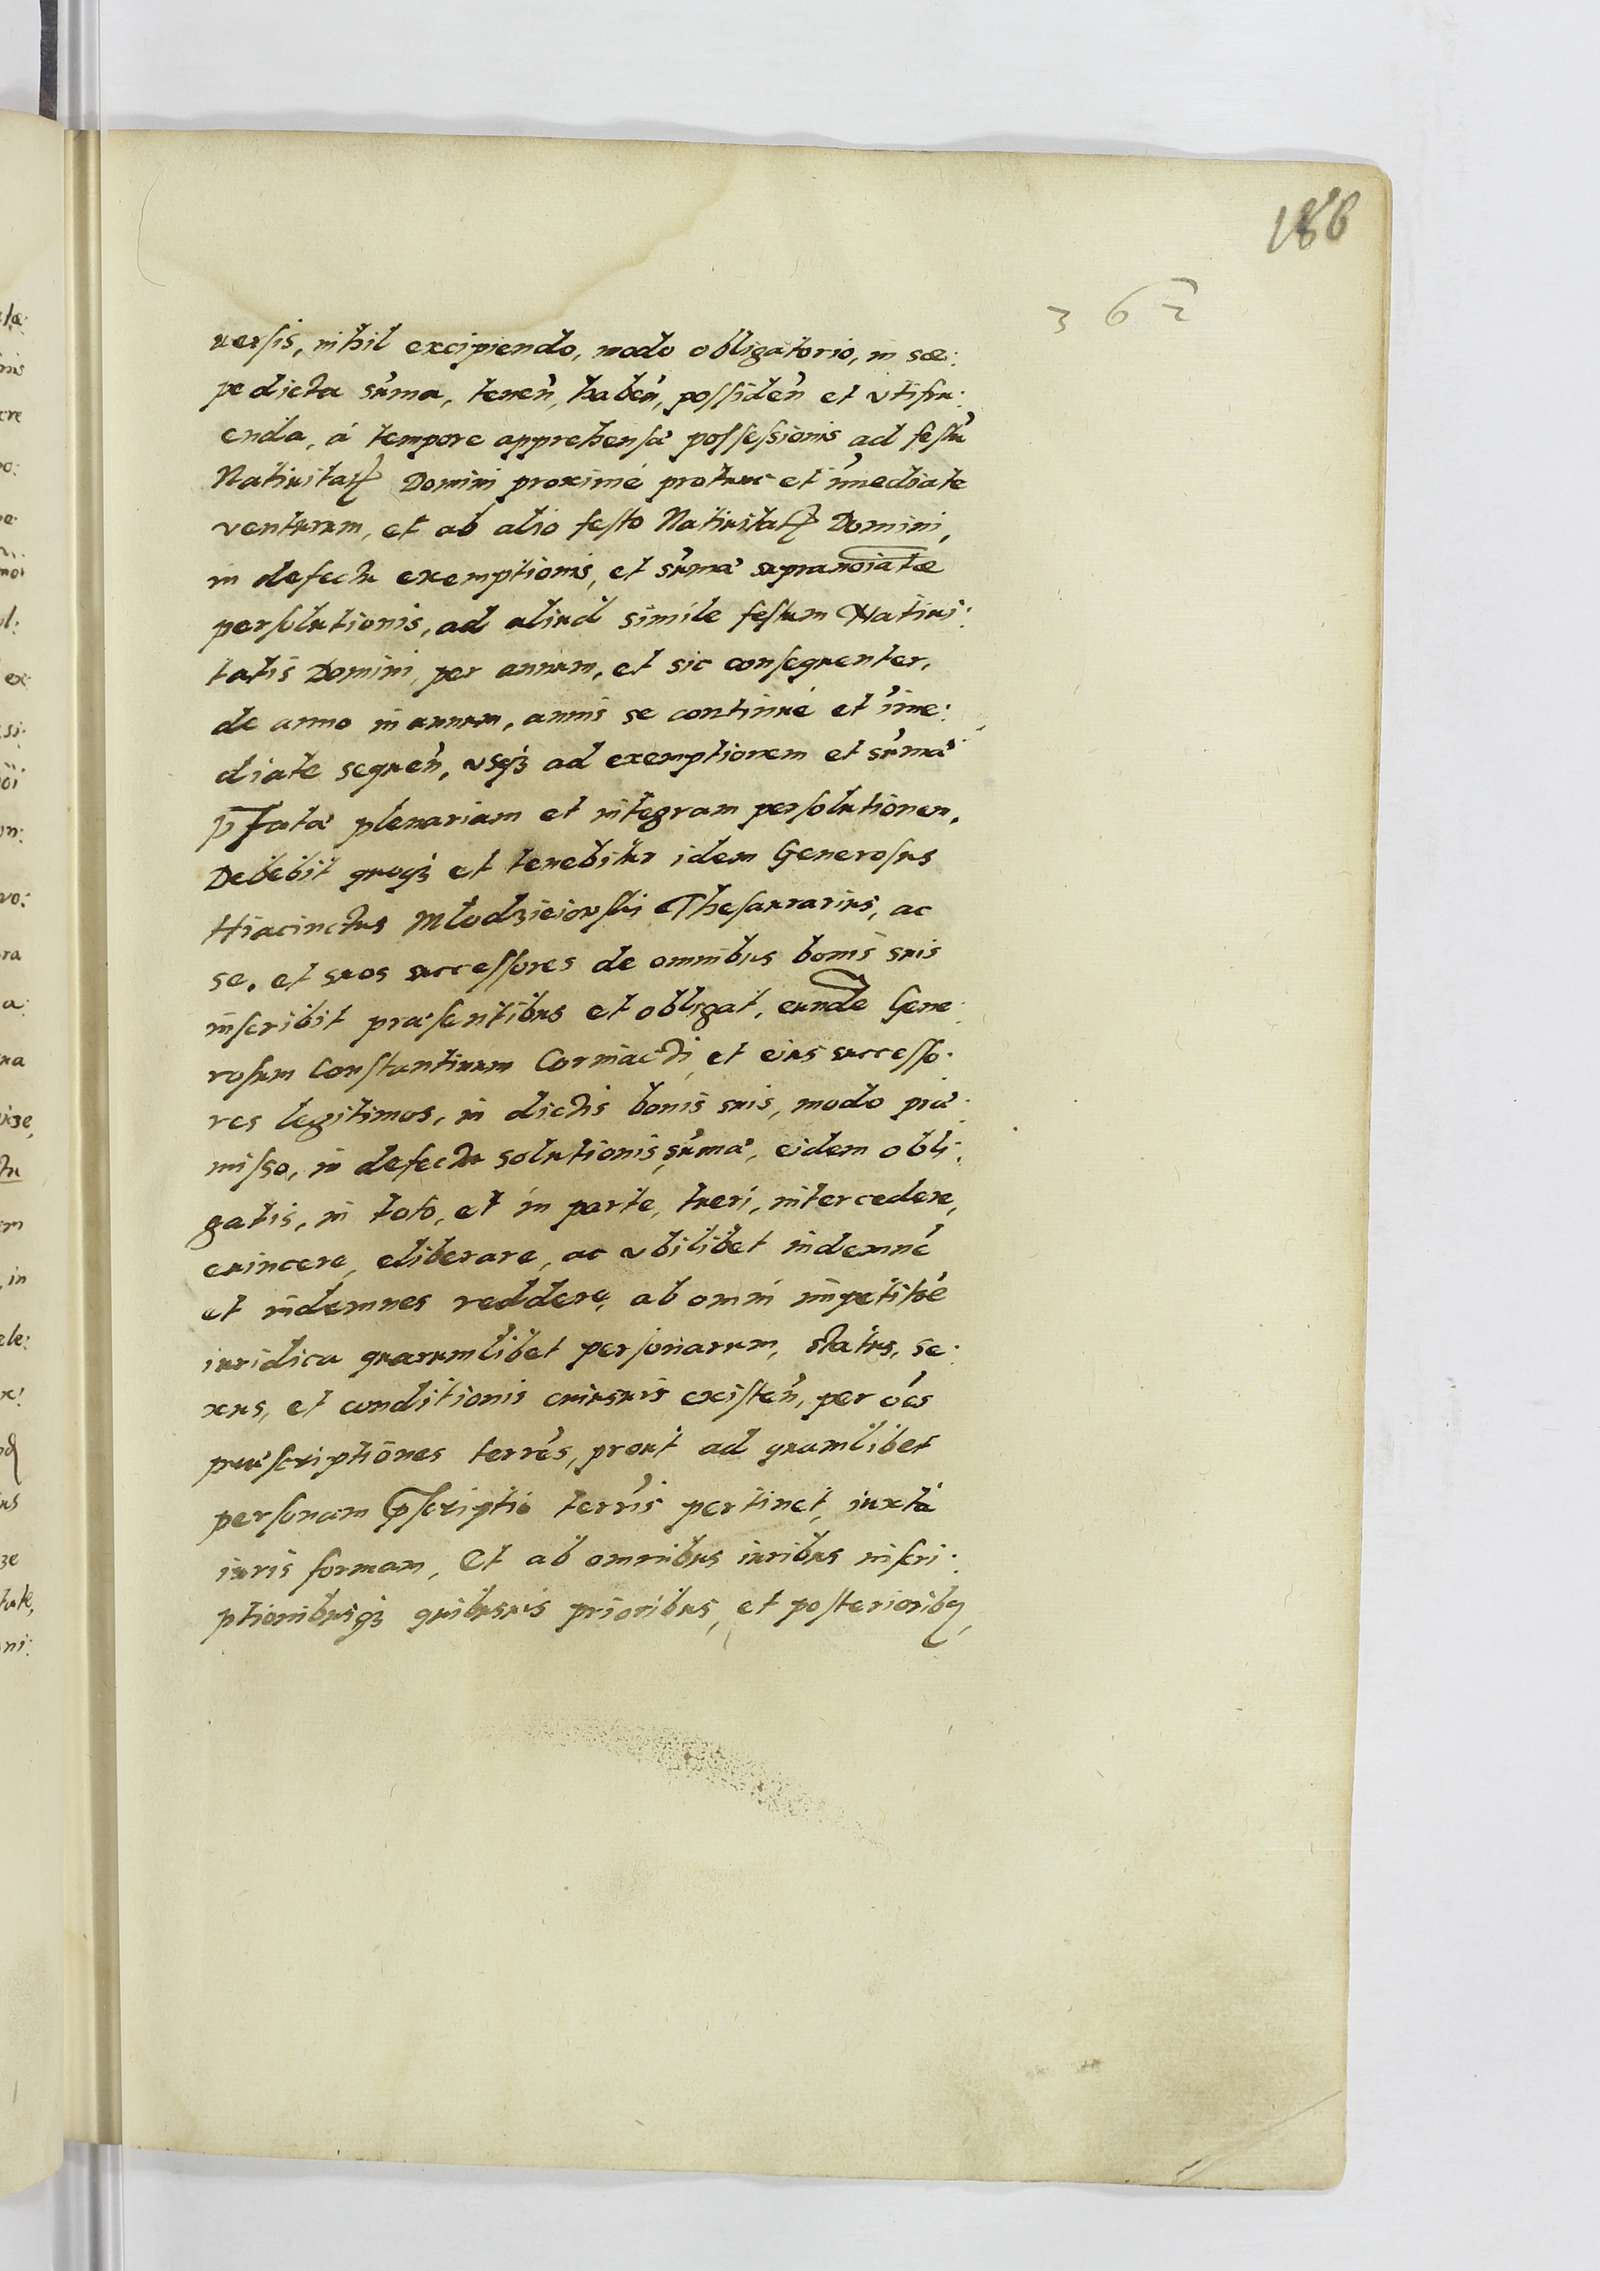 186
362
uersis, nihil excipiendo, modo obligatorio, in sæ:
pe dicta sũma, teneñ, habeñ, possideñ et vtifru:
enda, á tempore apprehensæ possessionis ad festũ
Natiuitatꝭ Domini proximé protunc et im̃ediate
venturum, et ab alio festo Natiuitatꝭ Domini,
in defectu exemptionis, et sũmæ supranoĩatæ
persolutionis, ad aliud simile festum Natiui:
tatis Domini, per annum, et sic consequenter,
de anno in annum, annis se continué et im̃e:
diate sequeñ, vsqꝫ ad exemptionem et sũmæ
p̃fatæ plenariam et integram persolutionem,
Debebit quoqꝫ et tenebitur idem Generosus
Hiacinctus Młodzieiouski Thesaurarius, ac
se, et suos successores de omnibus bonis suis
inscribit præsentibus et obligat, eundẽ Gene:
rosum Constantinum Corniacti, et eius successo:
res legitimos, in dictis bonis suis, modo præ:
misso, in defectu solutionis sũmæ, eidem obli:
gatis, in toto, et in parte, tueri, intercedere,
euincere, eliberare, ac vbilibet indemné
et indemnes reddere, ab omni impetitõe
iuridica quarumlibet personarum, status, se:
xus, et conditionis cuiusuis existeñ, per oẽs
præscriptiones terrẽs, prout ad quamlibet
personam p̃scriptio terrĩs pertinet, iuxta
iuris formam, Et ab omnibus iuribus inscri:
ptionibusqꝫ quibusuis prioribus, et posterioribꝰ,